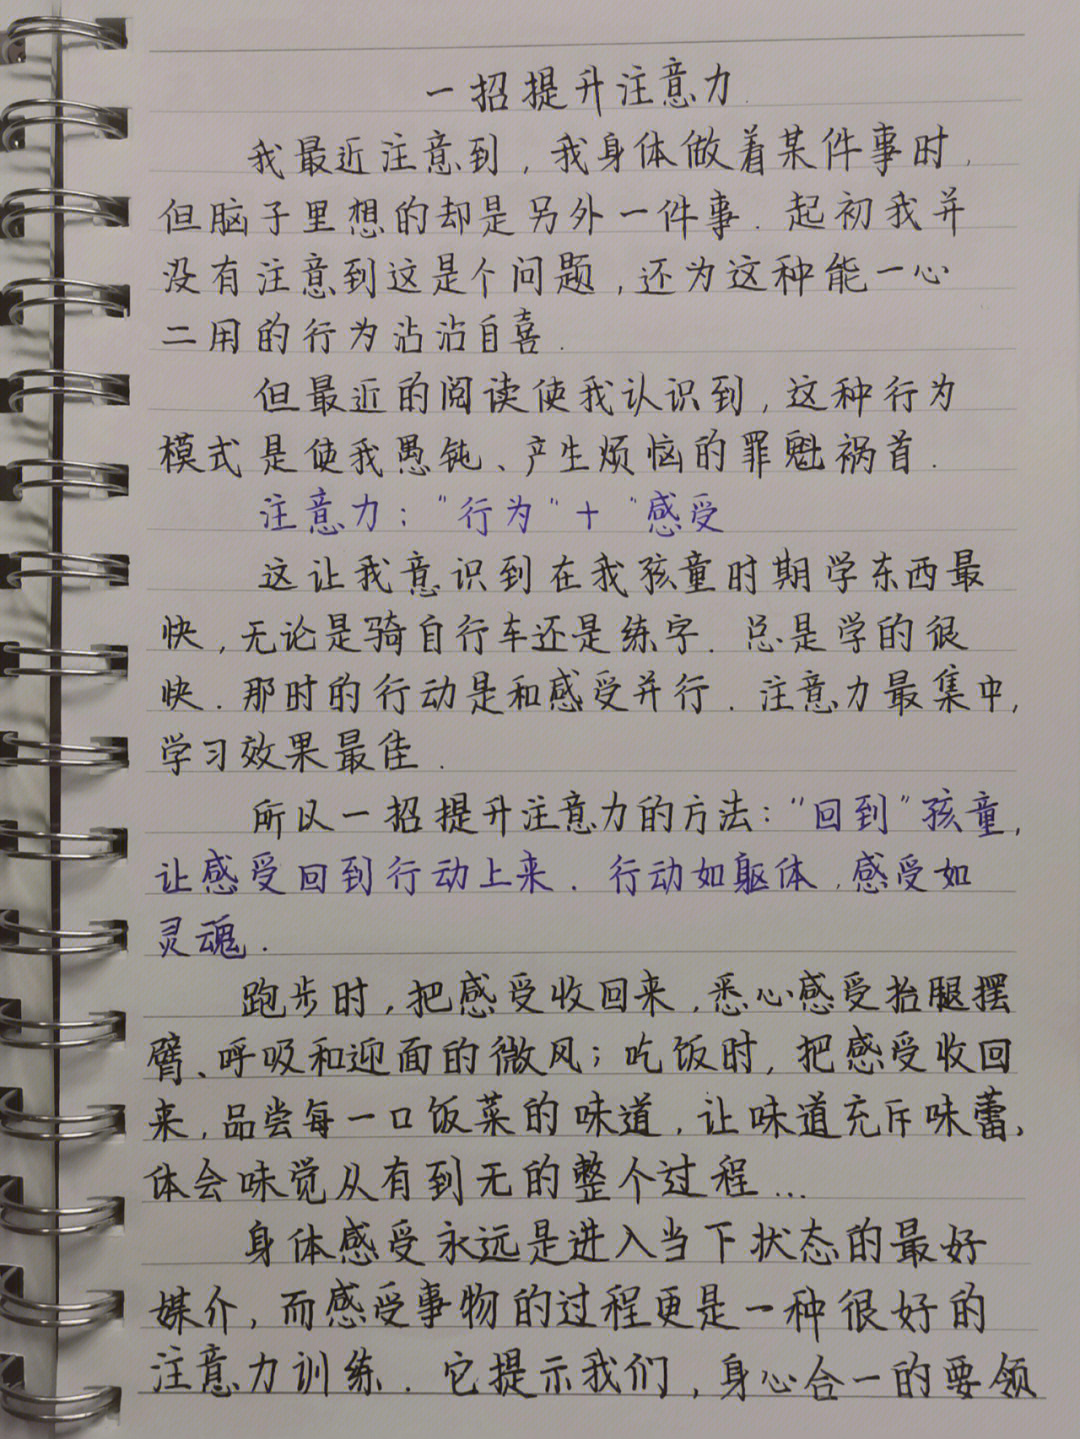 一招提升注意力.
我最近注意到,我身体做着某件事时,
但脑子里想的却是另外一件事.起初我并
没有注意到这是个问题,还为这种能一心
二用的行为沾沾自喜.
但最近的阅读使我认识到,这种行为
模式是使我愚钝、产生烦恼的罪魁祸首.
注意力:"行为"+"感受
这让我意识到在我孩童时期学东西最
快,无论是骑自行车还是练字.总是学的很
快.那时的行动是和感受并行.注意力最集中,
学习效果最佳.
所以一招提升注意力的方法:"回到"孩童,
让感受回到行动上来.行动如躯体,感受如
灵魂.
跑步时,把感受收回来,悉心感受抬腿摆
臂、呼吸和迎面的微风;吃饭时,把感受收回
来,品尝每一口饭菜的味道,让味道充斥味蕾,
体会味觉从有到无的整个过程...
身体感受永远是进入当下状态的最好
媒介,而感受事物的过程更是一种很好的
注意力训练.它提示我们,身心合一的要领